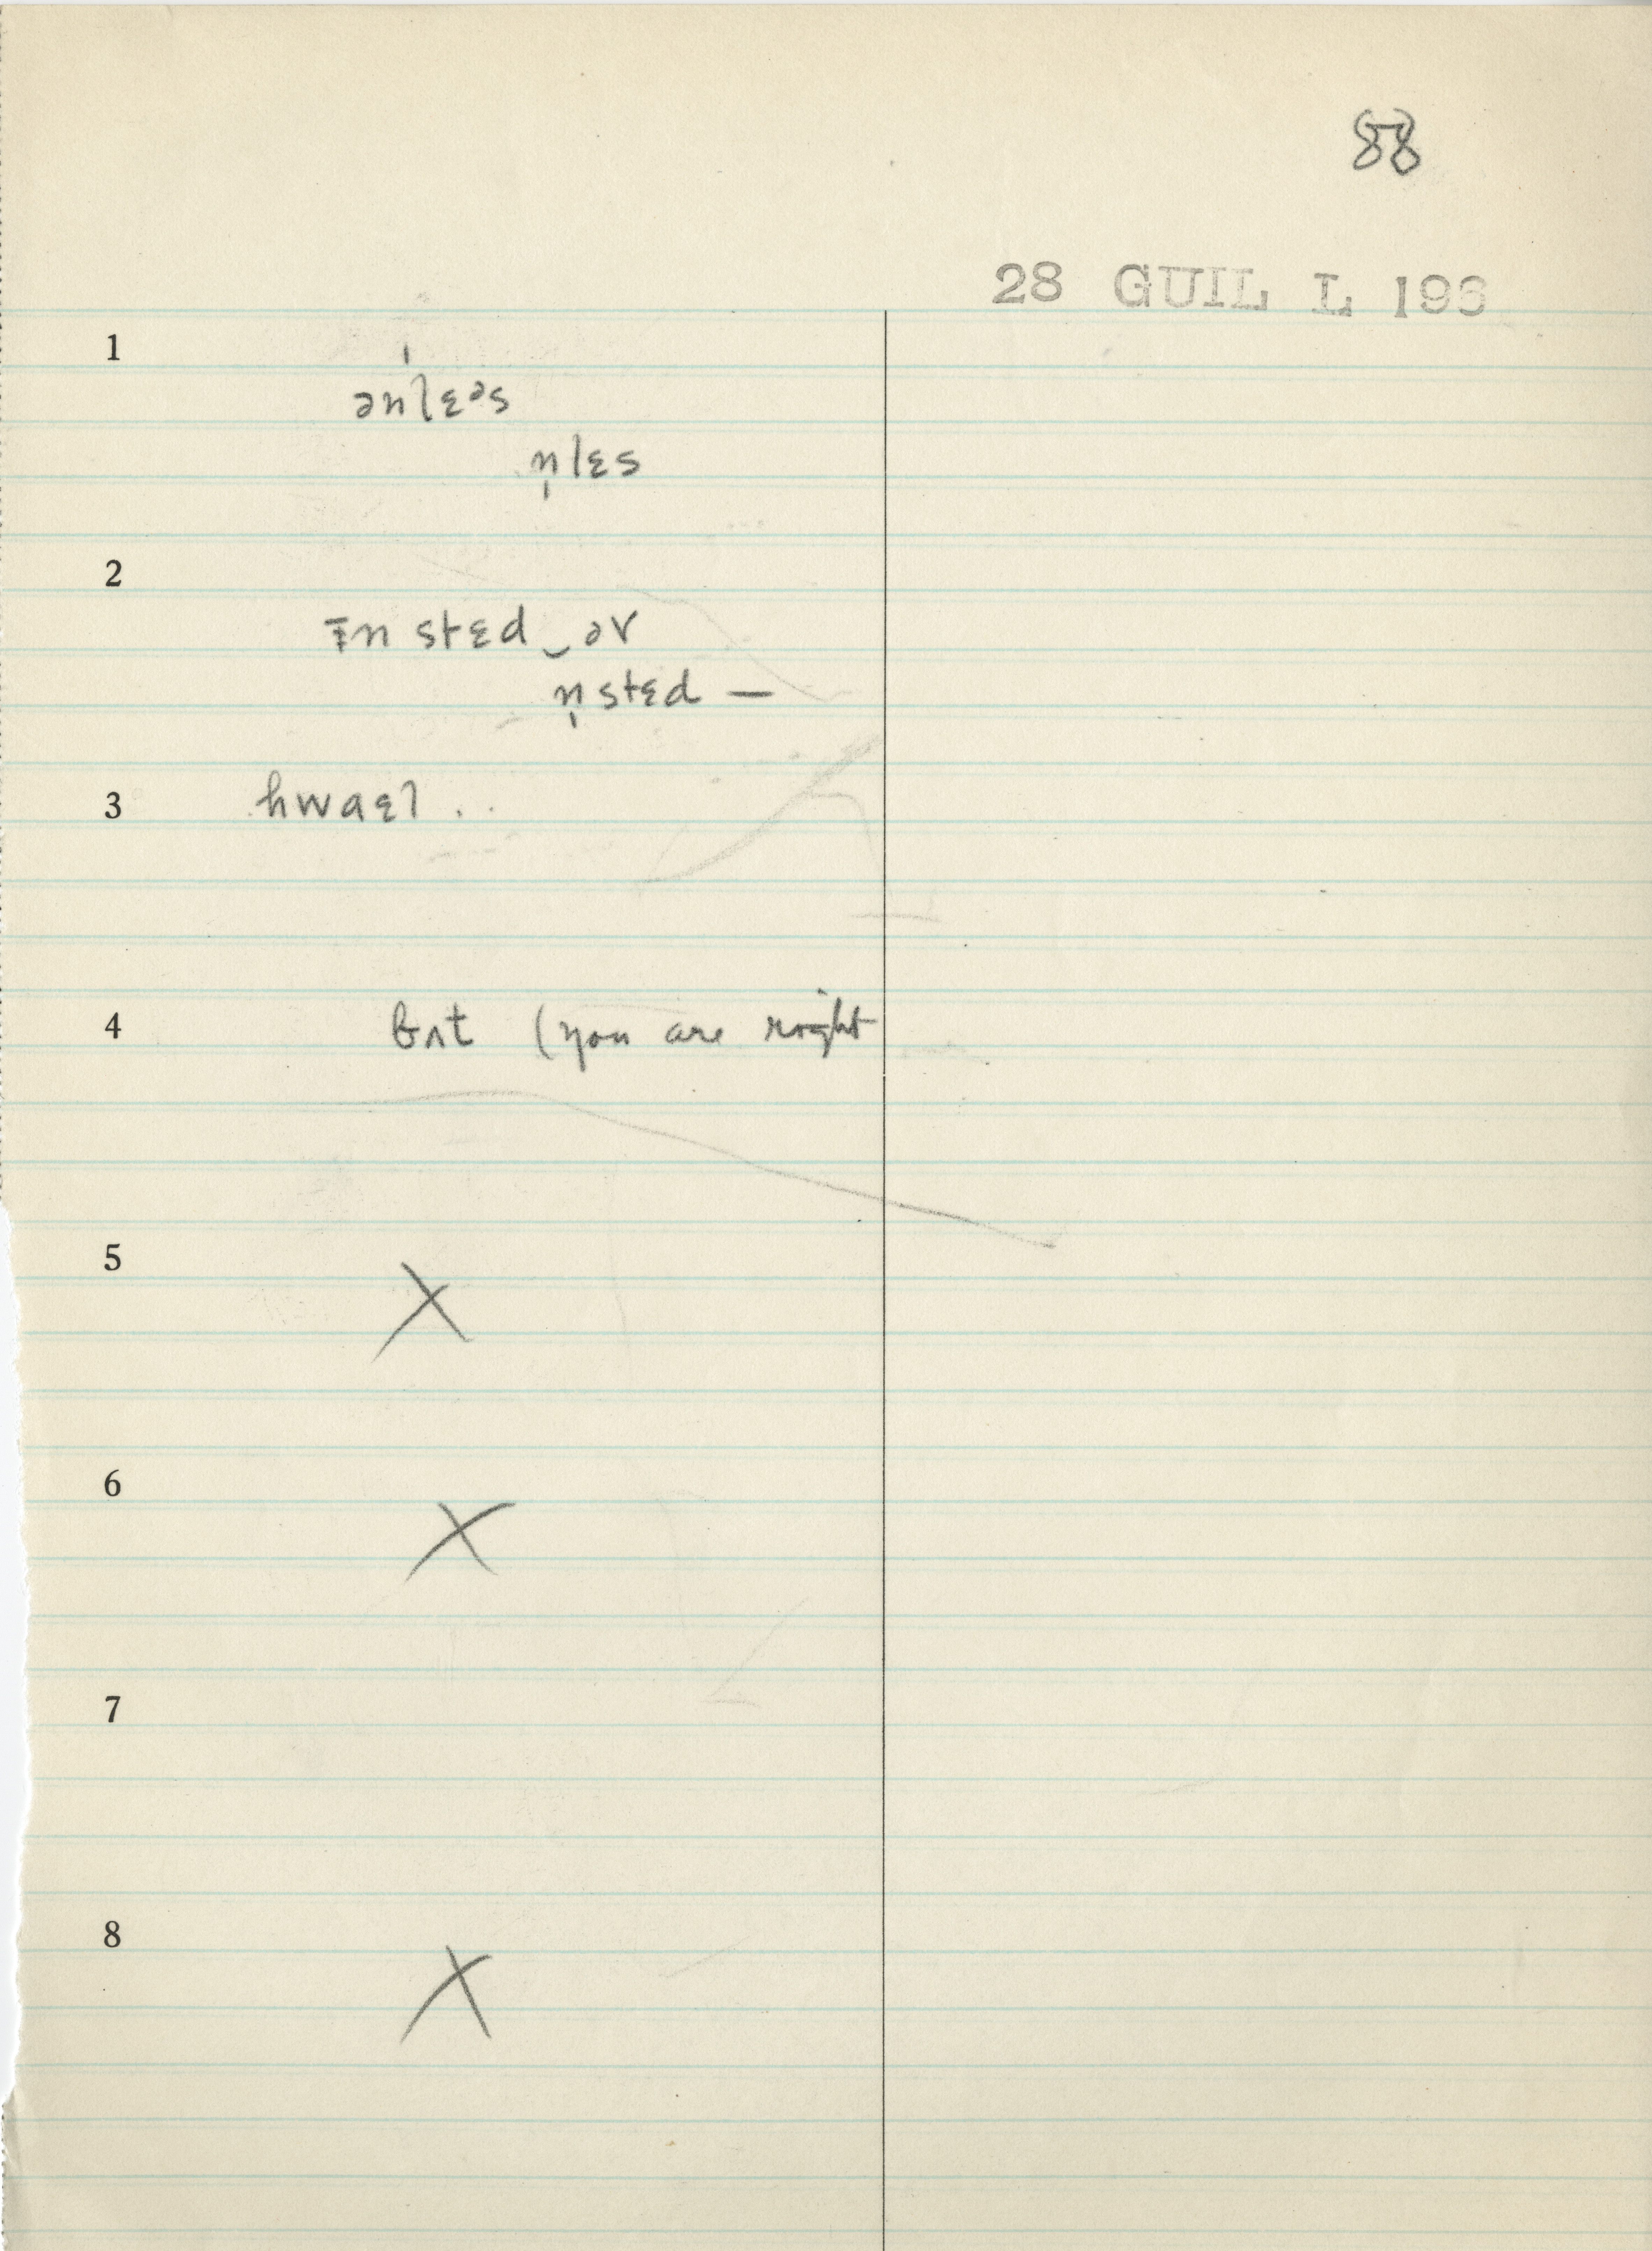 88
28 GUIL L 196
1
ən'lɛᵊs
n̩lɛs
2
ɪ̵n stɛd‿əv
n̩stɛd —
3
hwaɛl . .
4
bʌt (you are right
5
X
6
X
7
8
X